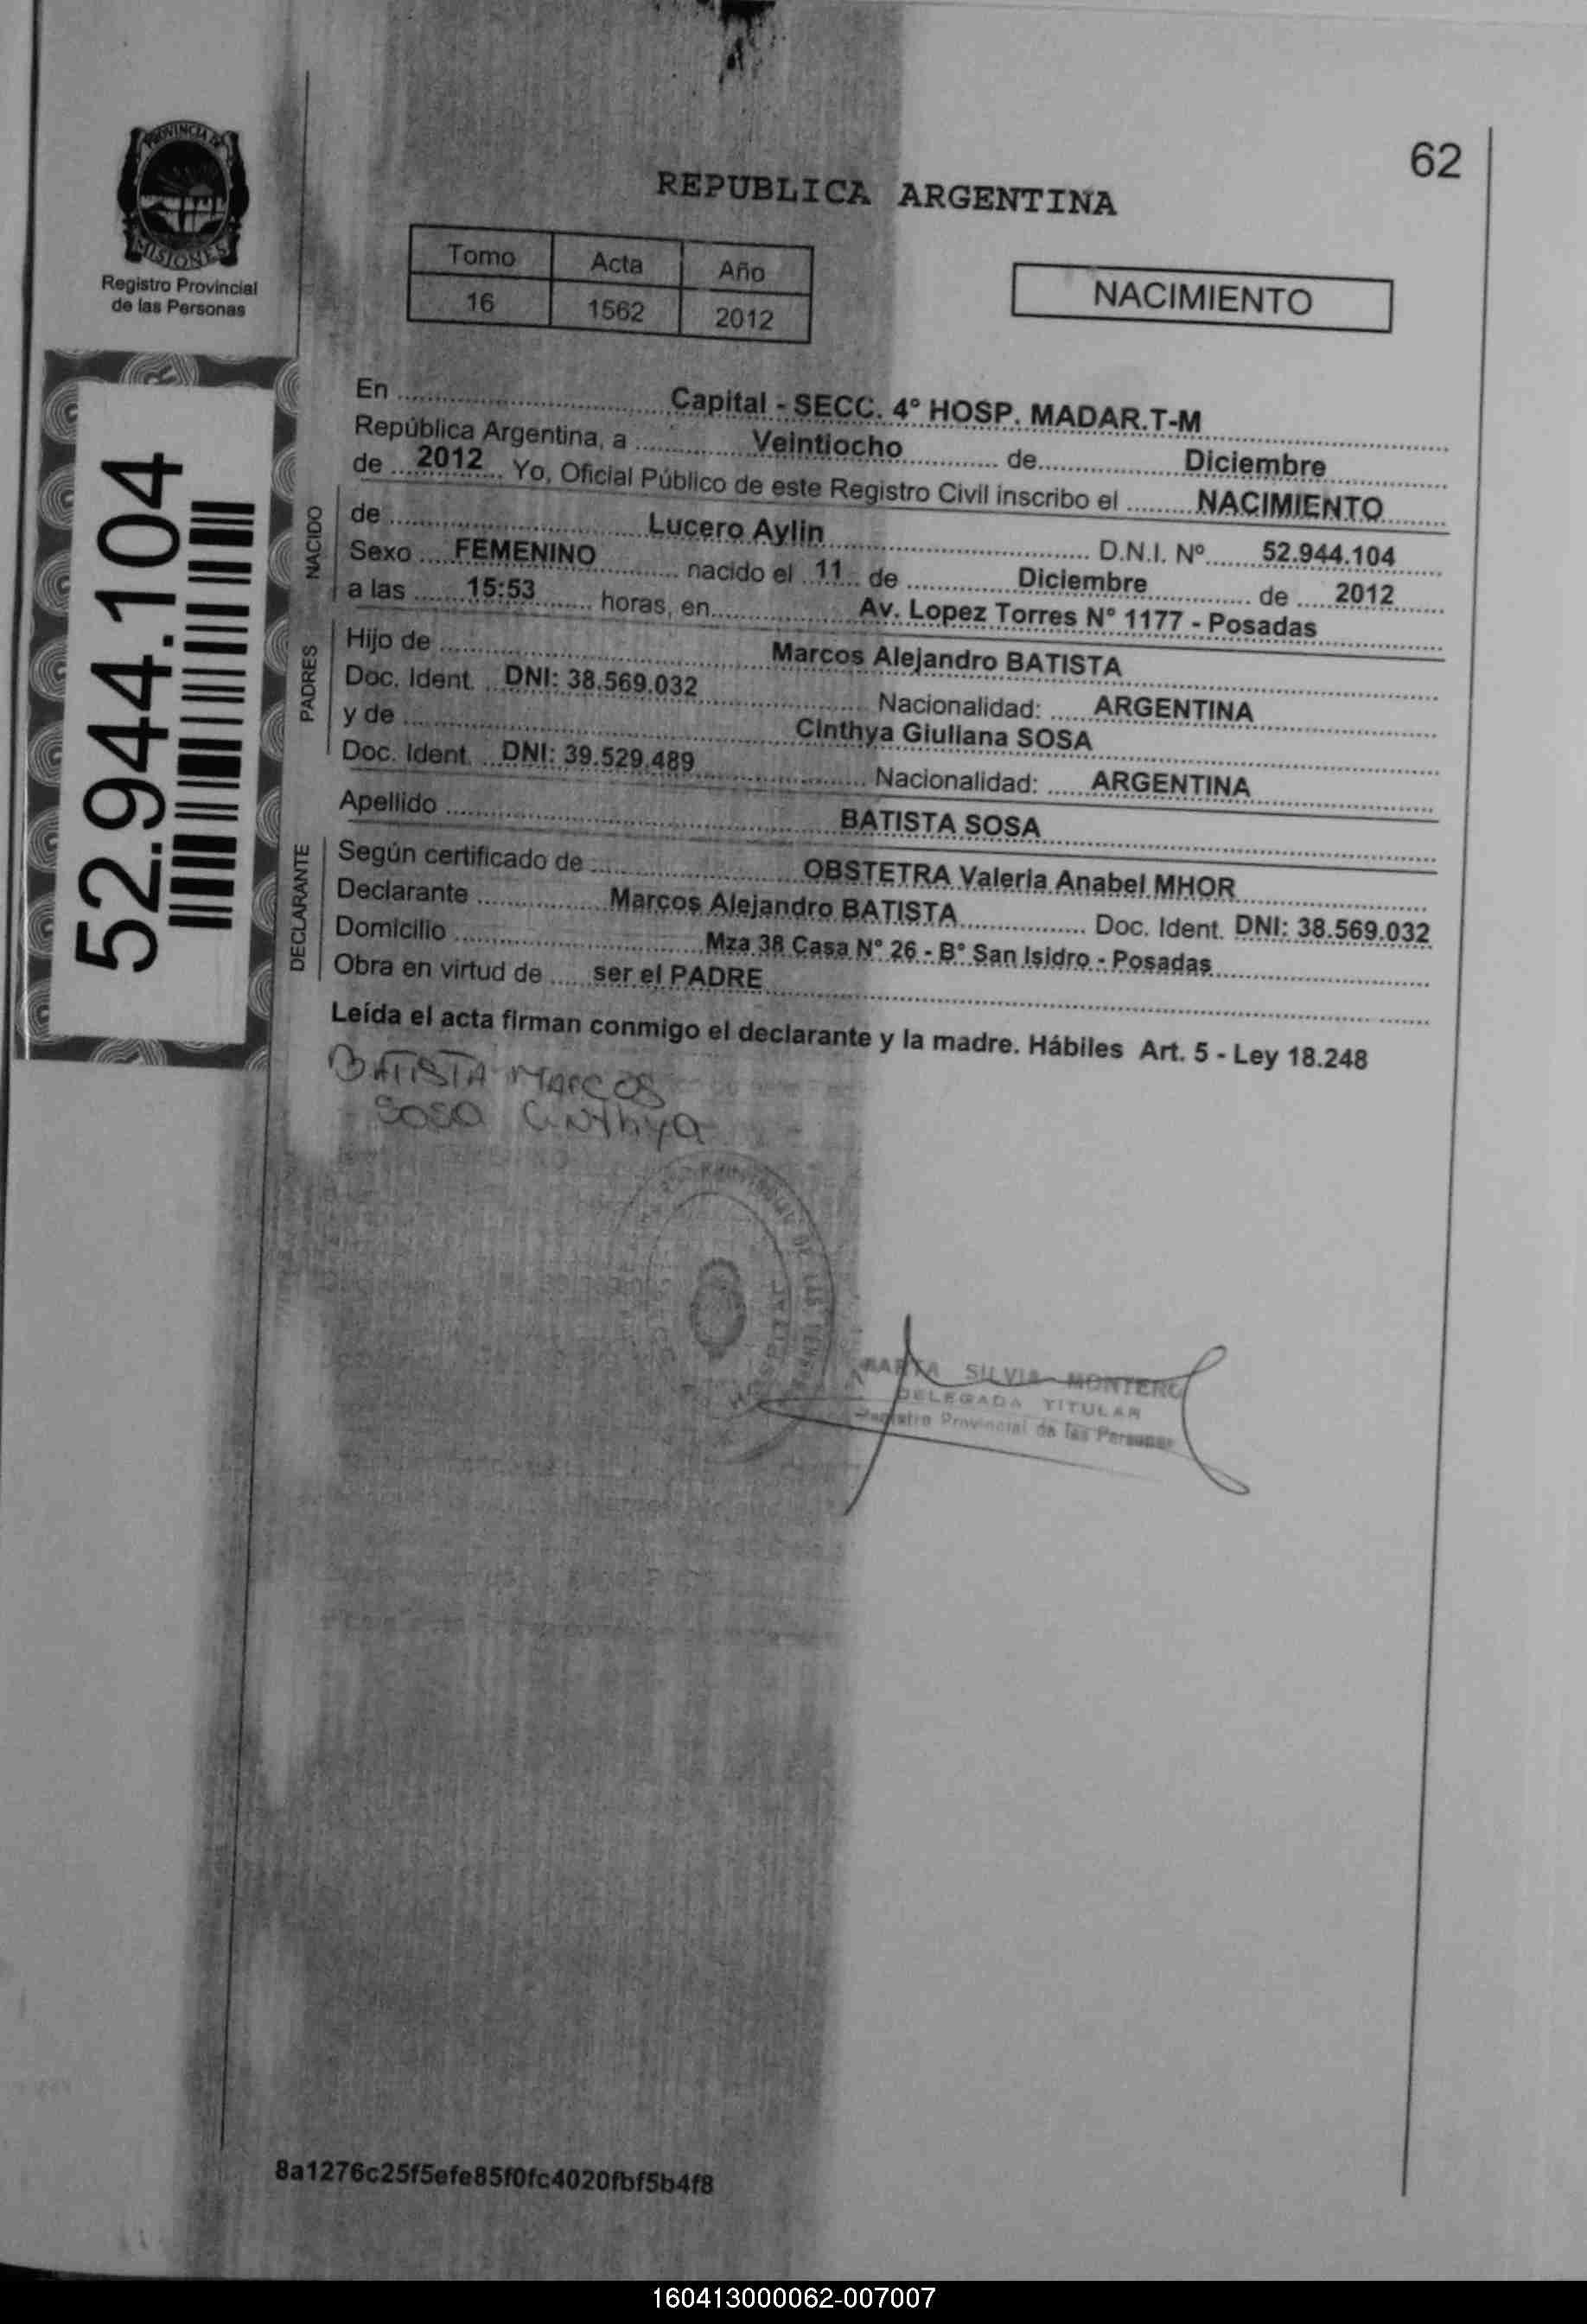 PROVINCIA DE
MISIONES
Registro Provincial
de las Personas
62
REPUBLICA ARGENTINA
Tomo Acta Año
16 1562 2012
NACIMIENTO
52.944.104
En Capital - SECC. 4° HOSP. MADAR.T-M
República Argentina, a Veintiocho de Diciembre
de 2012 Yo, Oficial Público de este Registro Civil inscribo el NACIMIENTO
NACIDO
de Lucero Aylin D.N.I. Nº 52.944.104
Sexo FEMENINO nacido el 11 de Diciembre de 2012
a las 15:53 horas, en Av. Lopez Torres N° 1177 - Posadas
PADRES
Hijo de Marcos Alejandro BATISTA
Doc. Ident. DNI: 38.569.032 Nacionalidad: ARGENTINA
y de Cinthya Giuliana SOSA
Doc. Ident. DNI: 39.529.489 Nacionalidad: ARGENTINA
Apellido BATISTA SOSA
DECLARANTE
Según certificado de OBSTETRA Valeria Anabel MHOR
Declarante Marcos Alejandro BATISTA Doc. Ident. DNI: 38.569.032
Domicilio Mza 38 Casa N° 26 - B° San Isidro - Posadas
Obra en virtud de ser el PADRE
Leída el acta firman conmigo el declarante y la madre. Hábiles Art. 5 - Ley 18.248
BATISTA MARCOS
SOSA CINthya
MARTA SILVIA MONTERO
DELEGADA TITULAR
Registro Provincial de las Personas
8a1276c25f5efe85f0fc4020fbf5b4f8
160413000062-007007